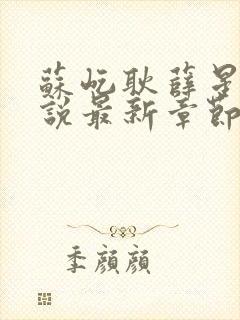 蘇屹耿薛星
說最新章節
季顏顏